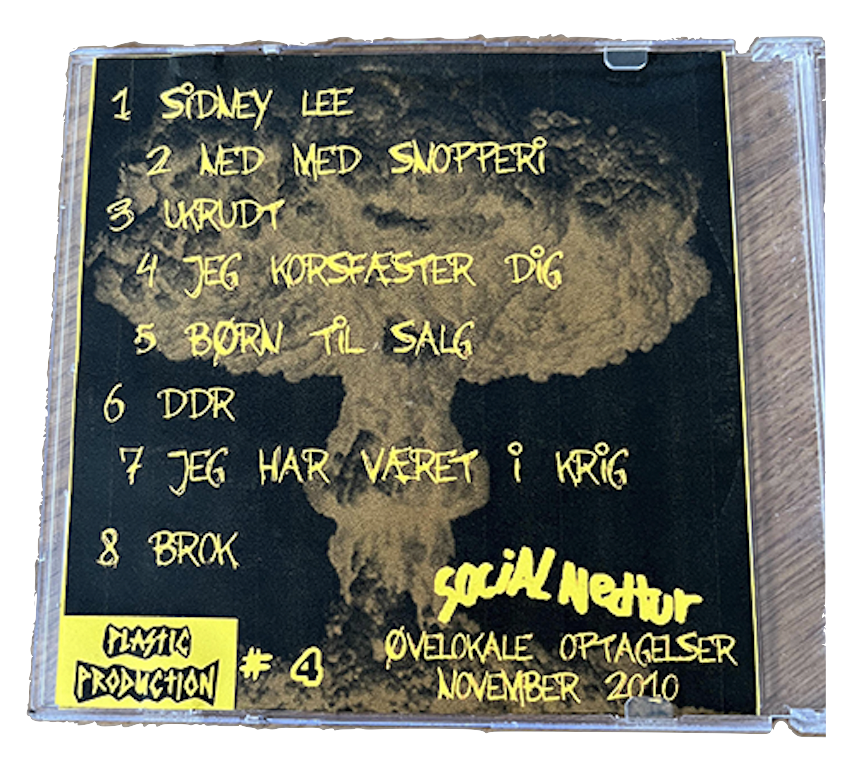 1 SiDNEY LEE
2 NED MED SNOPPERi
3 UKRUDT
4 JEG KORSFÆSTER DiG
5 BØRN TiL SALG
6 DDR
7 JEG HAR VÆRET i KRiG
8 BROK
SOCiAL Nedtur
ØVELOKALE OPTAGELSER
NOVEMBER 2010
PLASTIC
PRODUCTION # 4